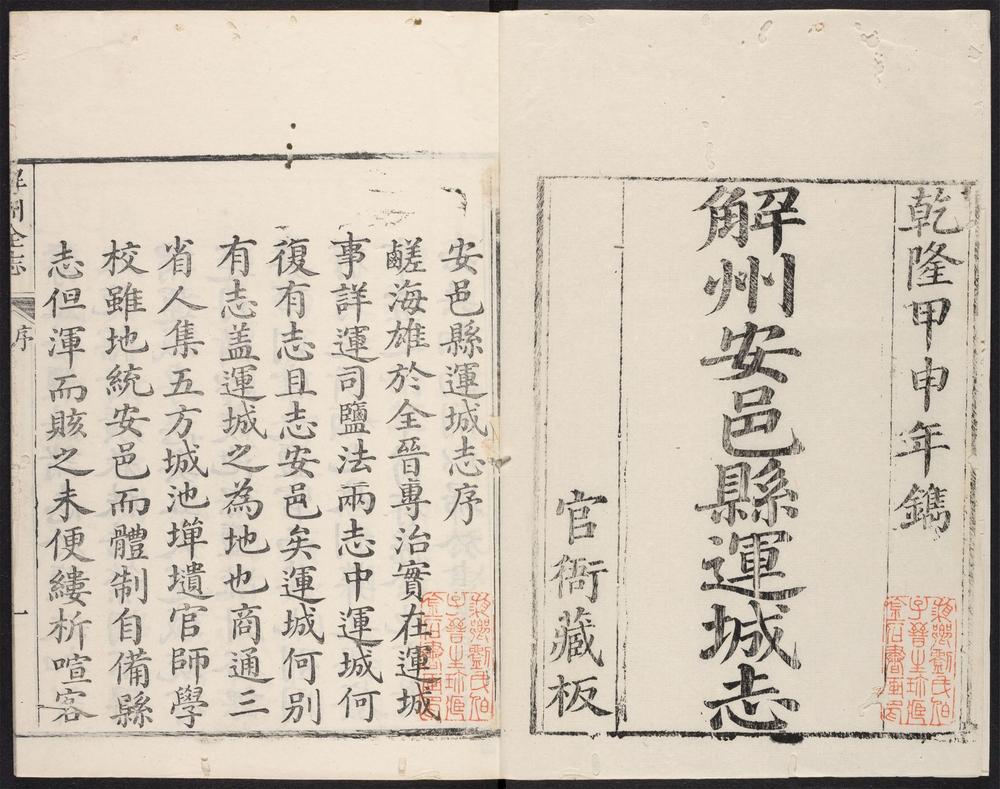 乾隆甲申年鐫
解州安邑縣運城志
官衙藏板
安邑縣運城志序
鹺海雄於全晉專治實在運城
事詳運司鹽法兩志中運城何
復有志且志安邑矣運城何别
有志盖運城之為地也商通三
省人集五方城池墠壝官師學
校雖地統安邑而體制自備縣
志但渾而賅之未便縷析喧客
解州全志
序
一